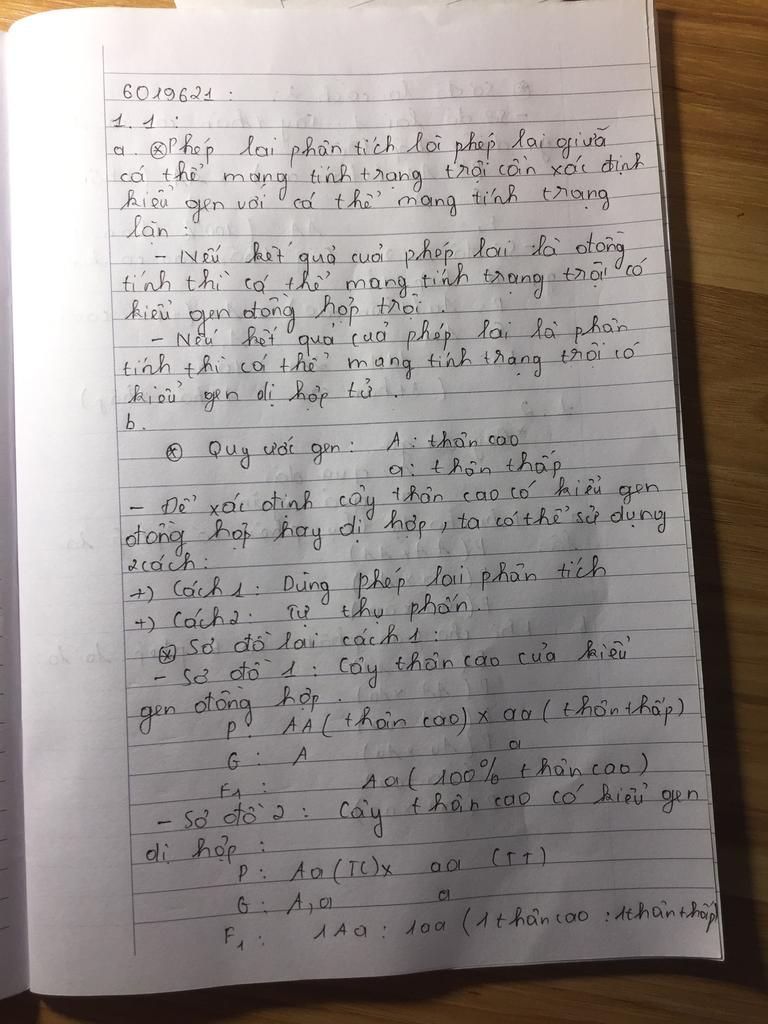 6019621 :
1. 1 :
a. ⊗ Phép lai phân tích là phép lai giữa
cá thể mang tính trạng trội cần xác định
kiểu gen với cá thể mang tính trạng
lặn :
- Nếu kết quả của phép lai là đồng
tính thì cá thể mang tính trạng trội có
kiểu gen đồng hợp trội.
- Nếu kết quả của phép lai là phân
tính thì cá thể mang tính trạng trội có
kiểu gen dị hợp tử.
b.
⊗ Quy ước gen : A : thân cao
a : thân thấp
- Để xác định cây thân cao có kiểu gen
đồng hợp hay dị hợp, ta có thể sử dụng
2 cách :
+) Cách 1 : Dùng phép lai phân tích
+) Cách 2 : Tự thụ phấn.
⊗ Sơ đồ lai cách 1 :
- Sơ đồ 1 : Cây thân cao của kiểu
gen đồng hợp.
P : AA ( thân cao ) x aa ( thân thấp )
G : A a
F1 : Aa ( 100% thân cao )
- Sơ đồ 2 : Cây thân cao có kiểu gen
dị hợp :
P : Aa (TC) x aa (TT)
G : A, a a
F1 : 1Aa : 1aa ( 1 thân cao : 1 thân thấp